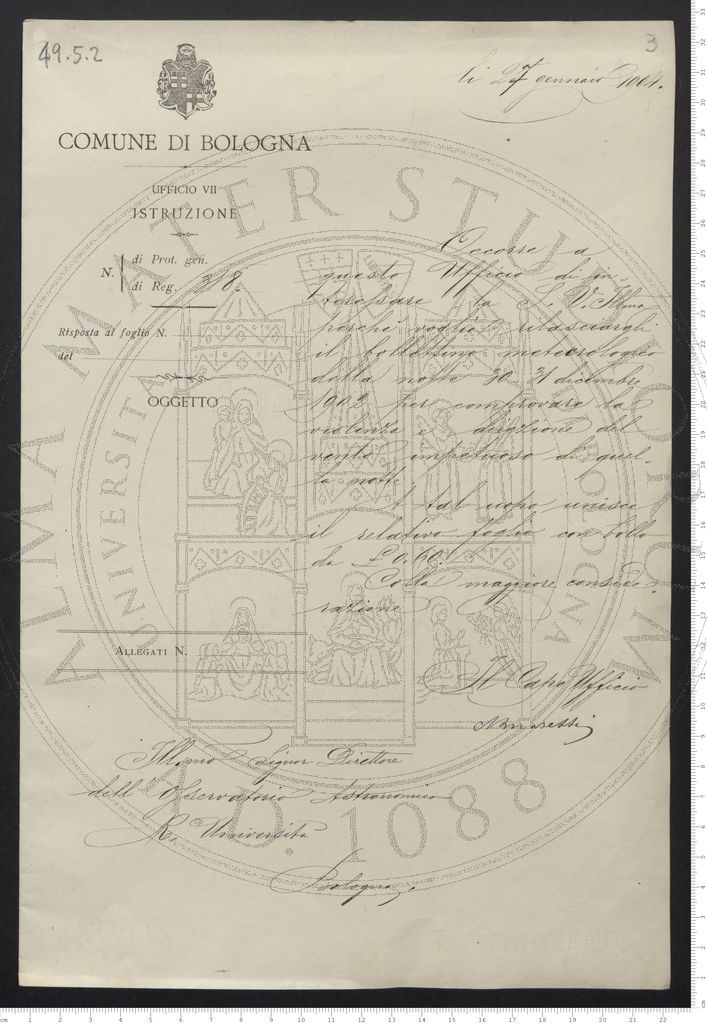 49.5.2
3
li 27 gennaio 1904.
COMUNE DI BOLOGNA
UFFICIO VII
ISTRUZIONE
N. di Prot. gen.
di Reg. 318.
Risposta al foglio N.
del
OGGETTO
Occorre a
questo Ufficio di in-
teressare la S. V. Illma
perchè voglia rilasciargli
il bollettino meteorologico
della notte 30-31 dicembre
1902 per comprovare la
violenza e direzione del
vento impetuoso di quel-
la notte.
A tal uopo unisce
il relativo foglio con bollo
da £ 0,60.
Colla maggiore conside-
razione
ALLEGATI N.
Il Capo Ufficio
Illmo Signor Direttore
dell'Osservatorio Astronomico
R. Università
Bologna.
ALMA MATER STUDIORUM
UNIVERSITÀ DI BOLOGNA
A.D. 1088